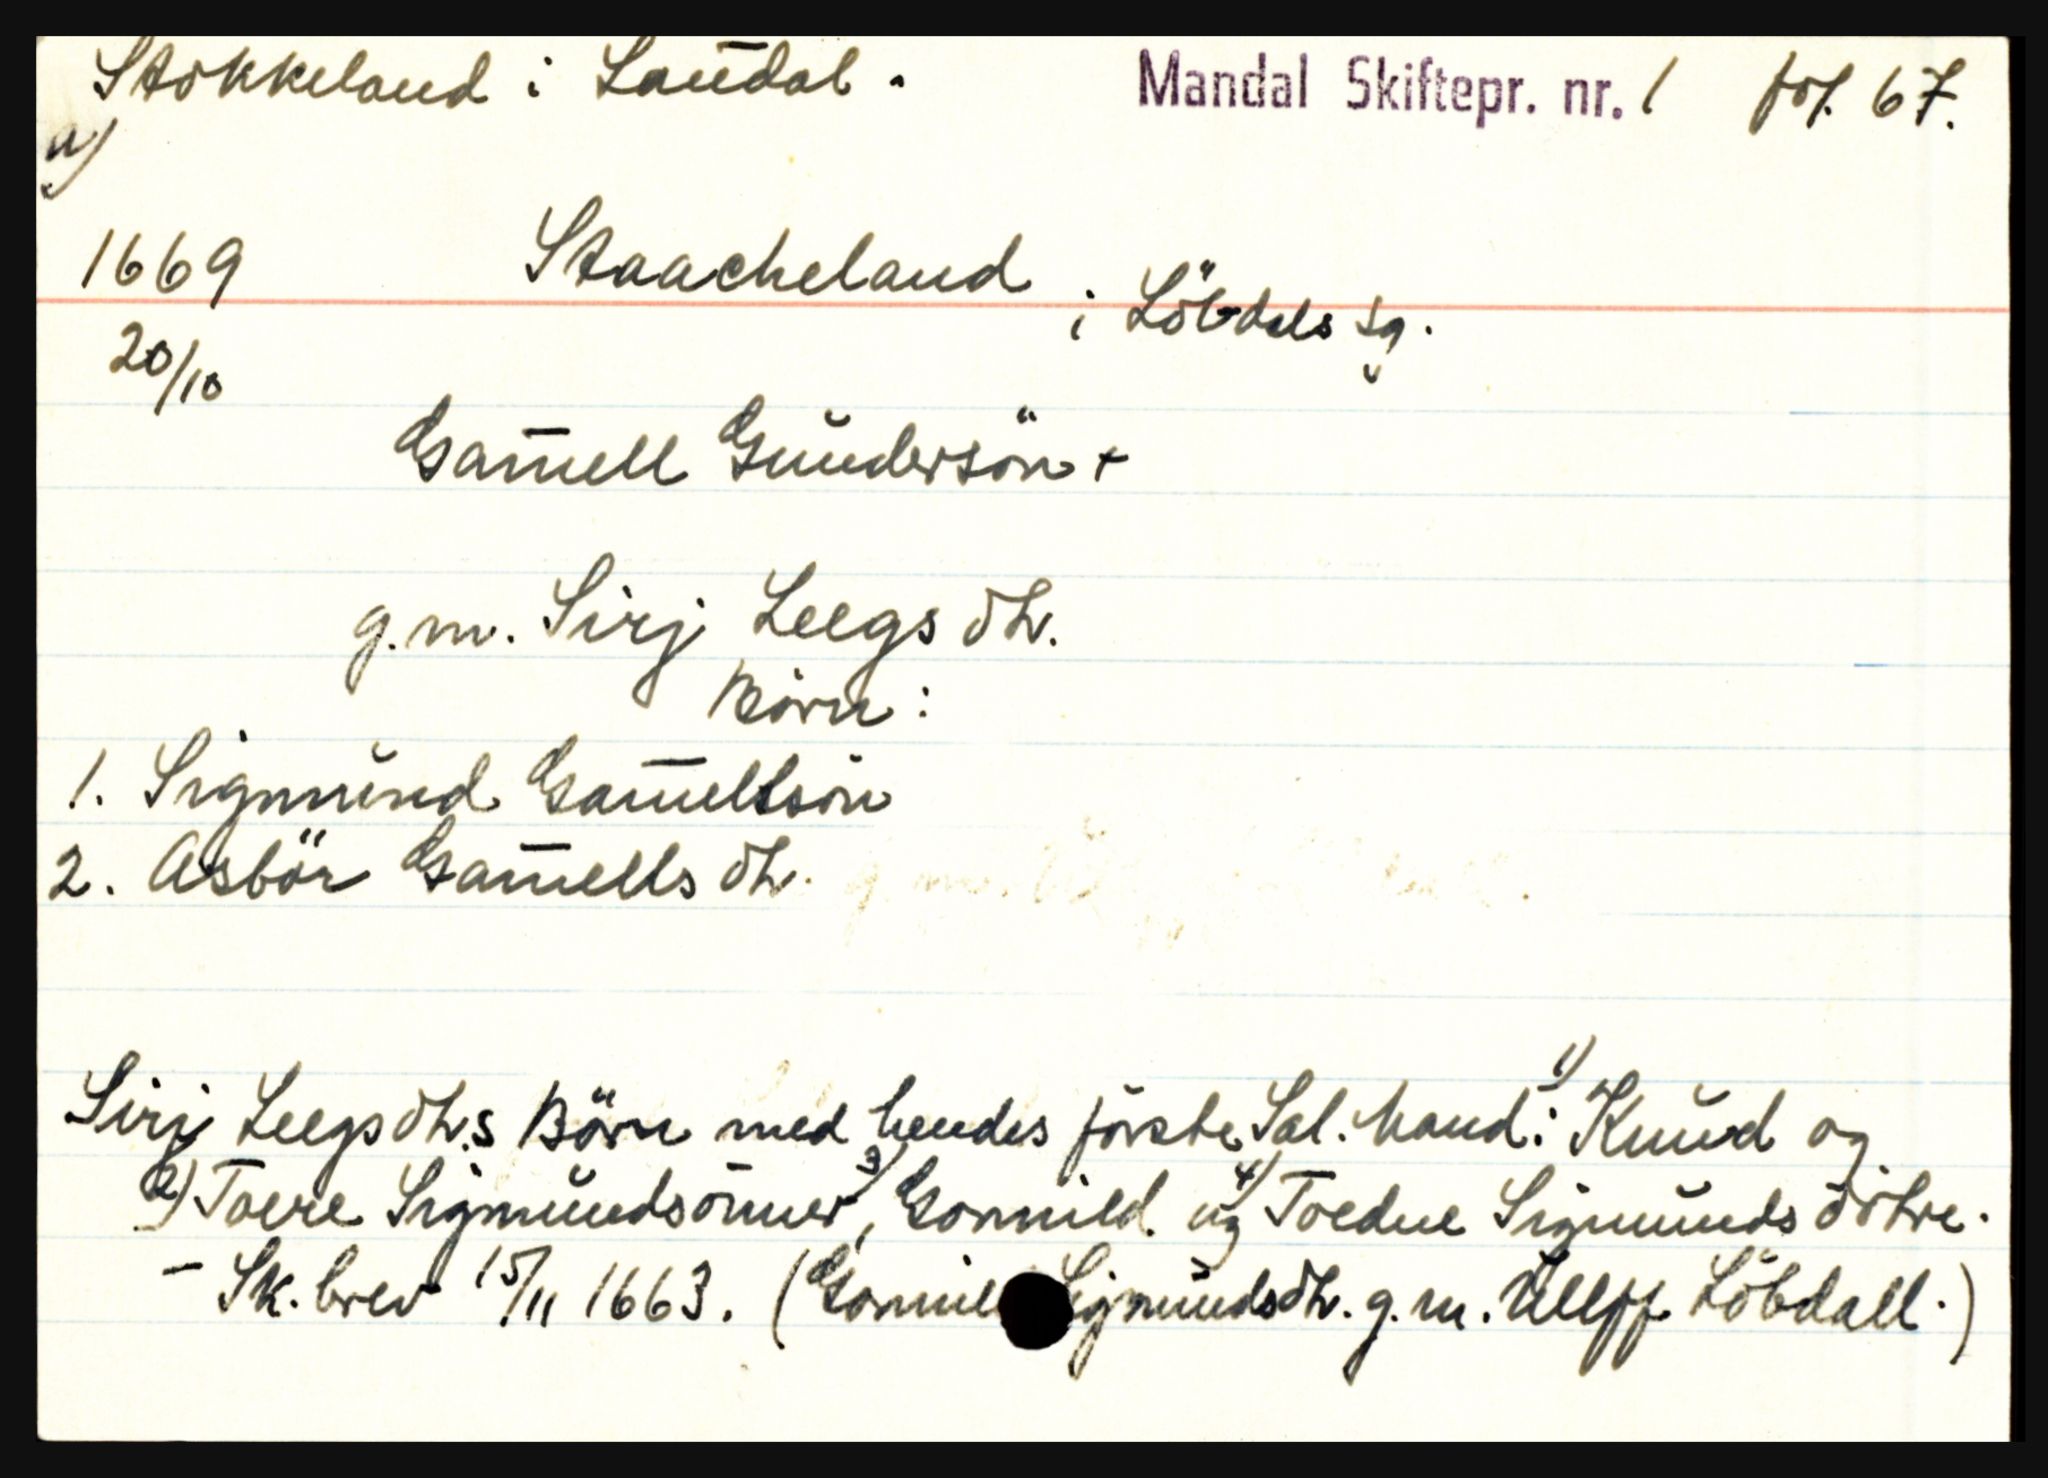 Stokkeland i Laudal. Mandal Skiftepr. nr. 1 fol. 67.
a)
1669 Staacheland i Löbdals sg.
20/10
Gam̄ell Gŭndersön +
g.m. Sirj Leegsdtr.
Börn:
1. Sigmŭnd Gam̄ellsön
2. Asbör Gam̄ellsdtr.
Sirj Leegsdtr.s Börn med hendes förste Sal. Mand: 1) Knŭd og
2) Toere Sigmŭndsönner, 3) Gonnild og 4) Toedne Sigmŭndsdötre.
- Sk.brev 15/11 1663. (Gonnild Sigmŭndsdtr. g.m. Ŭllff Löbdall.)